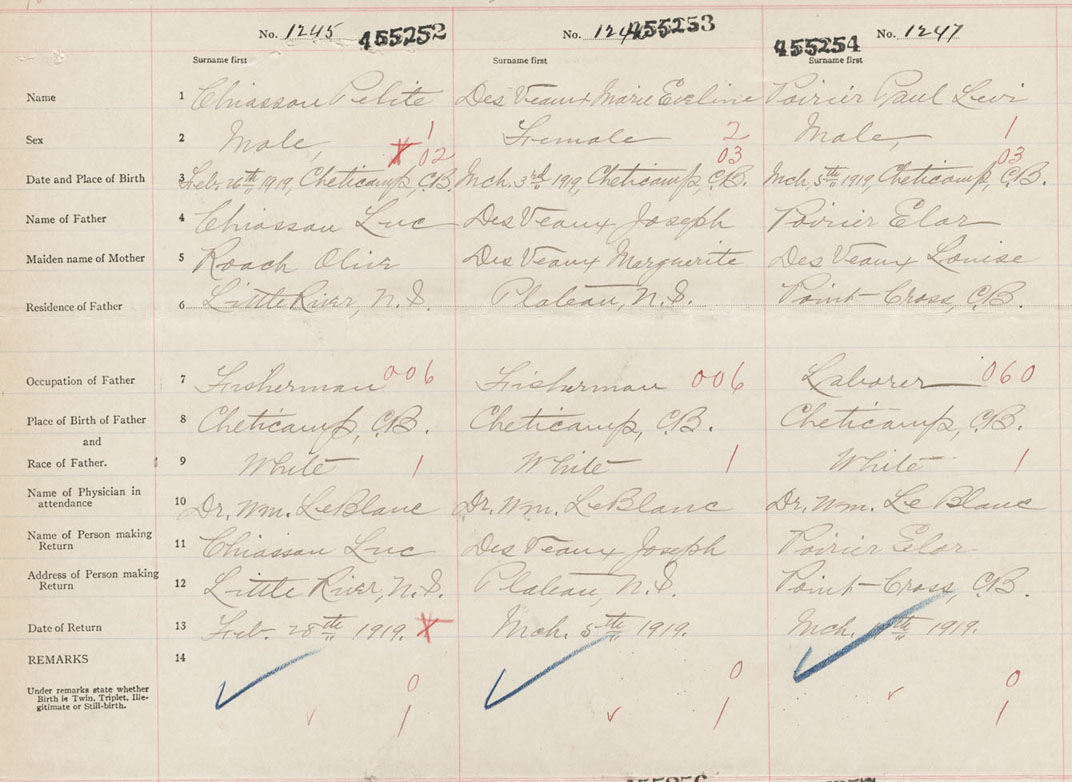 No. 1245 455252 No. 455253 455254 No. 1247
Surname first Surname first Surname first
Name 1 Chiasson Pelite Des Veaux Marie Eveline Poirier Paul Levi
Sex 2 Male, 1 Female 2 Male, 1
02 03 03
Date and Place of Birth 3 Feb. 26th 1919, Cheticamp, C.B. Mch. 3rd 1919, Cheticamp, C.B. Mch. 5th 1919, Cheticamp, C.B.
Name of Father 4 Chiasson Luc Des Veaux Joseph Poirier Elar
Maiden name of Mother 5 Roach Olive Des Veaux Marguerite Des Veaux Louise
Residence of Father 6 Little River, N.S. Plateau, N.S. Point-Cross, C.B.
Occupation of Father 7 Fisherman 006 Fisherman 006 Laborer 060
Place of Birth of Father 8 Cheticamp, C.B. Cheticamp, C.B. Cheticamp, C.B.
and
Race of Father. 9 White 1 White 1 White 1
Name of Physician in
attendance 10 Dr. Wm. LeBlanc Dr. Wm. LeBlanc Dr. Wm. Le Blanc
Name of Person making
Return 11 Chiasson Luc Des Veaux Joseph Poirier Elar
Address of Person making
Return 12 Little River, N.S. Plateau, N.S. Point-Cross, C.B.
Date of Return 13 Feb. 28th 1919. Mch. 5th 1919. Mch. 1919.
REMARKS 14
Under remarks state whether
Birth is Twin, Triplet, Ille-
gitimate or Still-birth.
0 0 0
1 1 1